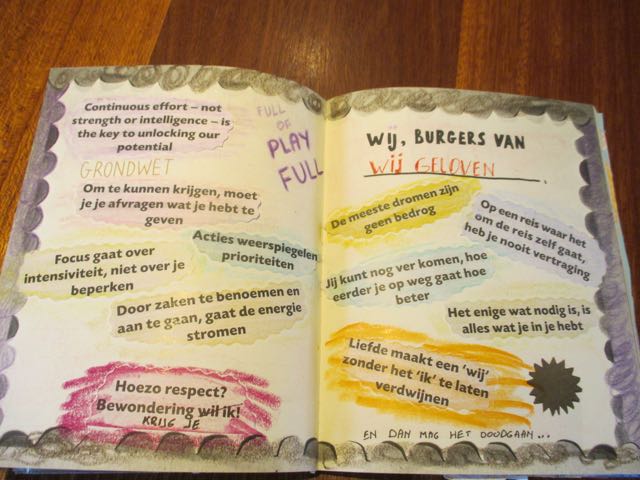 Continuous effort – not
strength or intelligence – is
the key to unlocking our
potential
FULL
OF
PLAY
FULL
GRONDWET
Om te kunnen krijgen, moet
je je afvragen wat je hebt te
geven
Acties weerspiegelen
prioriteiten
Focus gaat over
intensiviteit, niet over je
beperken
Door zaken te benoemen en
aan te gaan, gaat de energie
stromen
Hoezo respect?
Bewondering wil ik!
KRIJG JE
WIJ, BURGERS VAN
WIJ GELOVEN
De meeste dromen zijn
geen bedrog
Op een reis waar het
om de reis zelf gaat,
heb je nooit vertraging
Jij kunt nog ver komen, hoe
eerder je op weg gaat hoe
beter
Het enige wat nodig is, is
alles wat je in je hebt
Liefde maakt een 'wij'
zonder het 'ik' te laten
verdwijnen
EN DAN MAG HET DOODGAAN...